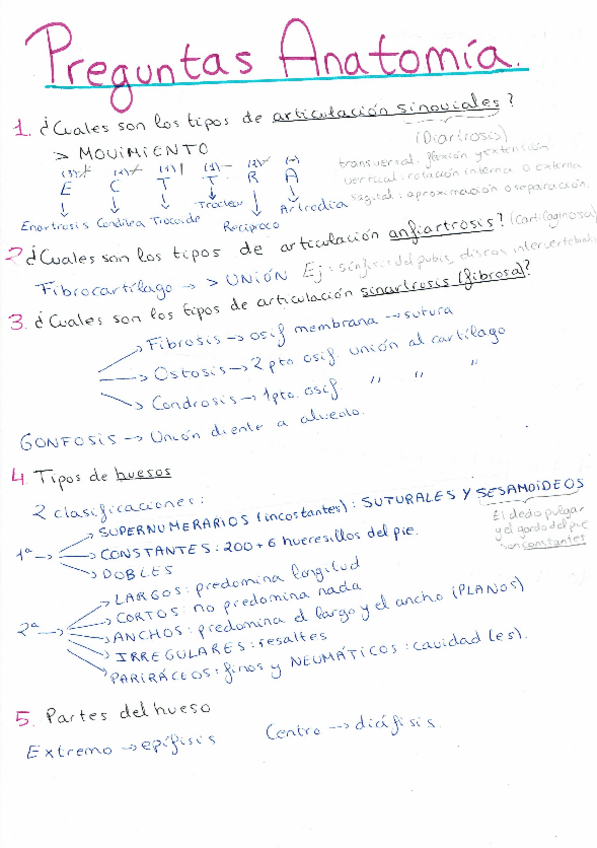 Preguntas Anatomía.
1. ¿Cuales son los tipos de articulación sinoviales?
(Diartrosis)
> MOVIMIENTO
transversal: flexión y extensión
vertical: rotación interna o externa
sagital: aproximación o separación.
E C T T R A
Enartrosis Condílea Trocoide Troclear Reciproco Artrodia
2. ¿Cuales son los tipos de articulación anfiartrosis? (cartilaginosa)
Fibrocartílago → > UNIÓN Ej: sínfisis del pubis, discos intervertebrales
3. ¿Cuales son los tipos de articulación sinartrosis (fibrosa)?
→ Fibrosis → osif membrana → sutura
→ Ostosis → 2 pto osif. unión al cartílago
→ Condrosis → 1 pto. osif. " " "
GONFOSIS → Unión diente a alveolo.
4. Tipos de huesos
2 clasificaciones:
1ª → SUPERNUMERARIOS (incostantes): SUTURALES Y SESAMOÍDEOS
→ CONSTANTES: 200 + 6 huesesillos del pie.
→ DOBLES
El dedo pulgar
y el gordo del pie
son constantes
2ª → LARGOS: predomina longitud
→ CORTOS: no predomina nada
→ ANCHOS: predomina el largo y el ancho (PLANOS)
→ IRREGULARES: resaltes
→ PARIRÁCEOS: finos y NEUMÁTICOS: cavidad (es).
5. Partes del hueso
Extremo → epífisis Centro → diáfisis.